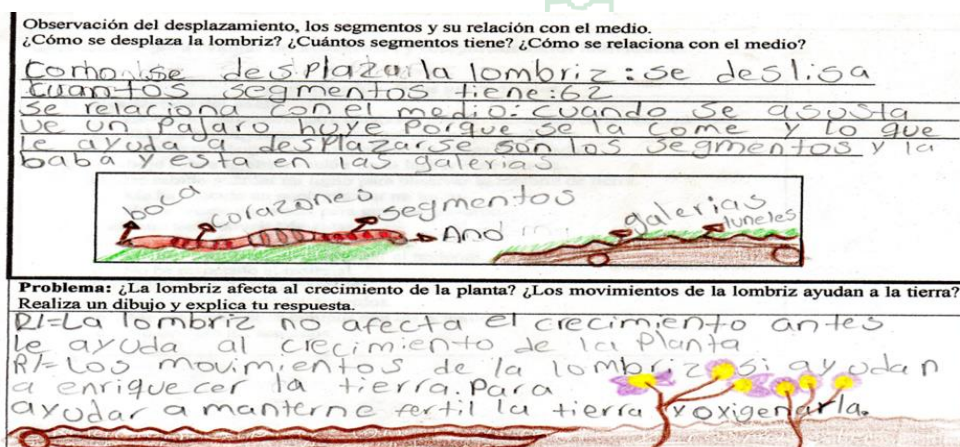 Observación del desplazamiento, los segmentos y su relación con el medio.
¿Cómo se desplaza la lombriz? ¿Cuántos segmentos tiene? ¿Cómo se relaciona con el medio?
Como se desplaza la lombriz: se deslisa
cuantos segmentos tiene: 62
se relaciona con el medio: cuando se asusta
ve un pajaro huye porque se la come y lo que
le ayuda a desplazarse son los segmentos y la
baba y esta en las galerias
boca corazones segmentos Ano
galerias tuneles
Problema: ¿La lombriz afecta al crecimiento de la planta? ¿Los movimientos de la lombriz ayudan a la tierra?
Realiza un dibujo y explica tu respuesta.
R/=La lombriz no afecta el crecimiento antes
le ayuda al crecimiento de la planta
R/= Los movimientos de la lombriz si ayudan
a enriquecer la tierra. Para
ayudar a manterne fertil la tierra y oxigenarla.